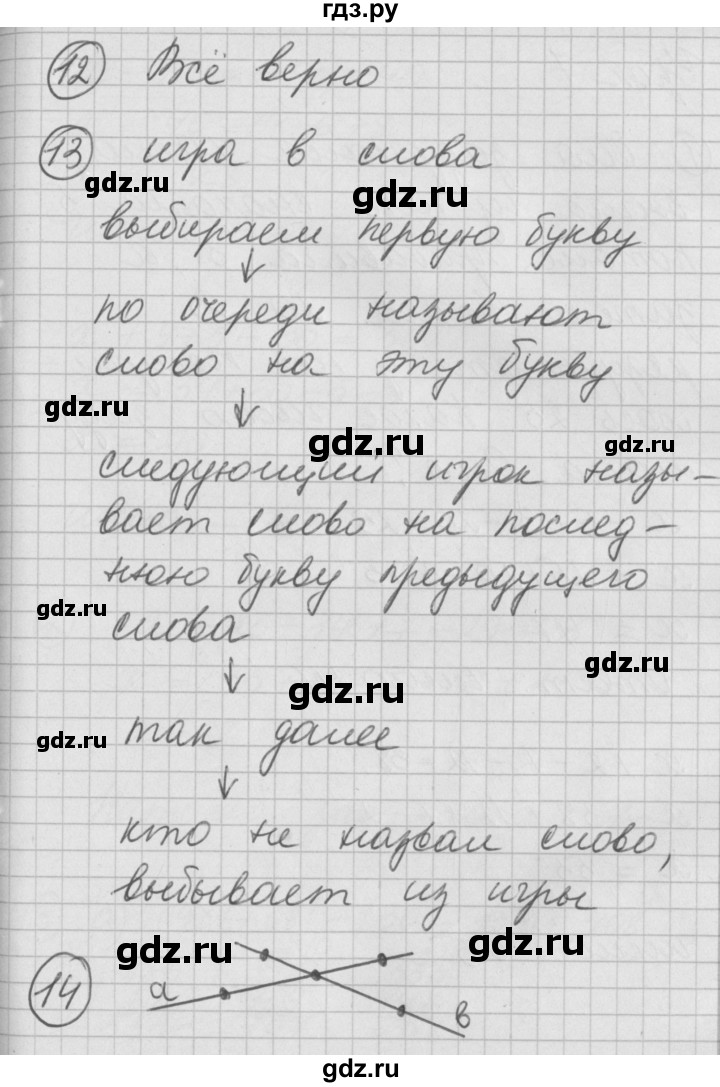 гдз.ру
12 Всё верно
13 игра в слова
gdz.ru gdz.ru
выбираем первую букву
по очереди называют
слово на эту букву
gdz.ru gdz.ru gdz.ru
следующий игрок назы-
вает слово на послед-
нюю букву предыдущего
gdz.ru
слова
gdz.ru
gdz.ru
так далее
gdz.ru
кто не назвал слово,
выбывает из игры
gdz.ru gdz.ru
14 а в
gdz.ru